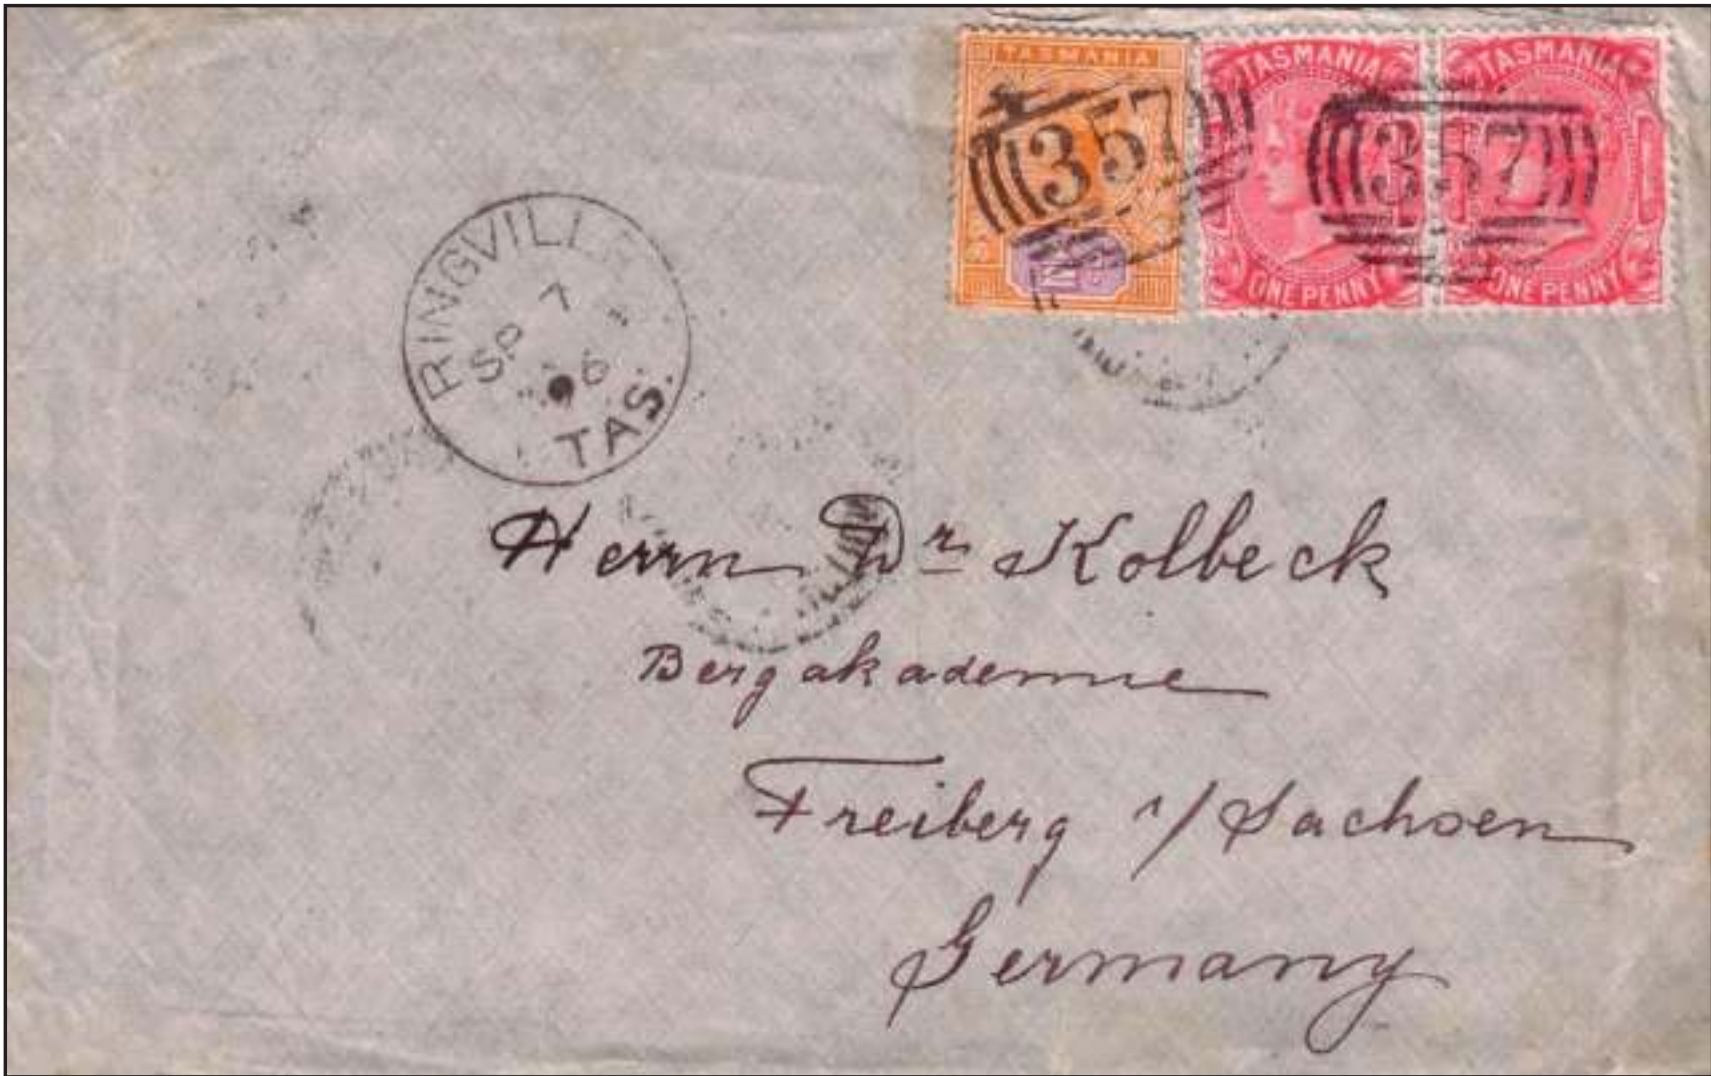 TASMANIA TASMANIA TASMANIA
357 357
ONE PENNY ONE PENNY
RINGVILLE
SP 7
96
TAS.
Herrn Dr Kolbeck
Bergakademie
Freiberg i/Sachsen
Germany